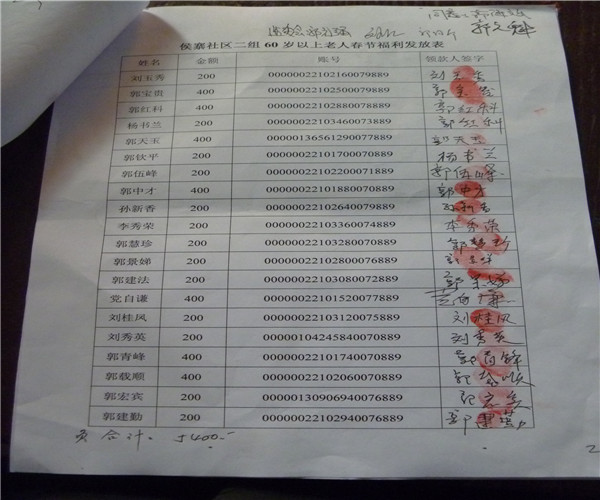 侯寨社区二组60岁以上老人春节福利发放表
姓名 金额 账号 领款人签字
刘玉秀 200 00000022102160079889
郭宝贵 400 00000022102500079889
郭红科 400 00000022102880078889 郭红科
杨书兰 200 00000022103460073889 郭红科
郭天玉 400 00000136561290077889 郭天玉
郭钦平 200 00000022101700070889 杨书兰
郭伍峰 200 00000022102200071889 郭伍峰
郭中才 400 00000022101880070889 郭中才
孙新香 200 00000022102640079889 孙新香
李秀荣 200 00000022103360074889 李秀荣
郭慧珍 200 00000022103280070889 郭慧珍
郭景娣 200 00000022102800076889
郭建法 200 00000022103080072889
党自谦 400 00000022101520077889 党自谦
刘桂凤 200 00000022103120075889 刘桂凤
刘秀英 200 00000104245840070889 刘秀英
郭青峰 400 00000022101740070889 郭青峰
郭载顺 400 00000022102060070889
郭宏宾 200 00000130906940076889
郭建勤 200 00000022102940076889 郭建勤
页合计: 5400.-